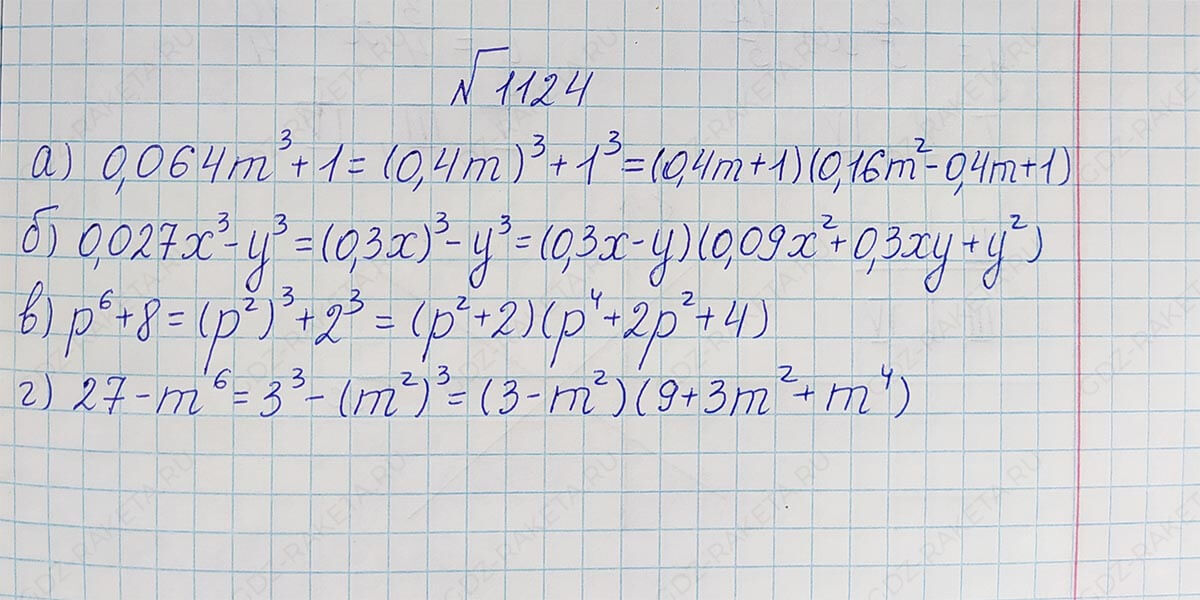 № 1124
а) 0,064m³ + 1 = (0,4m)³ + 1³ = (0,4m + 1)(0,16m² - 0,4m + 1)
б) 0,027x³ - y³ = (0,3x)³ - y³ = (0,3x - y)(0,09x² + 0,3xy + y²)
в) p⁶ + 8 = (p²)³ + 2³ = (p² + 2)(p⁴ + 2p² + 4)
г) 27 - m⁶ = 3³ - (m²)³ = (3 - m²)(9 + 3m² + m⁴)
GDZ-RAKETA.RU